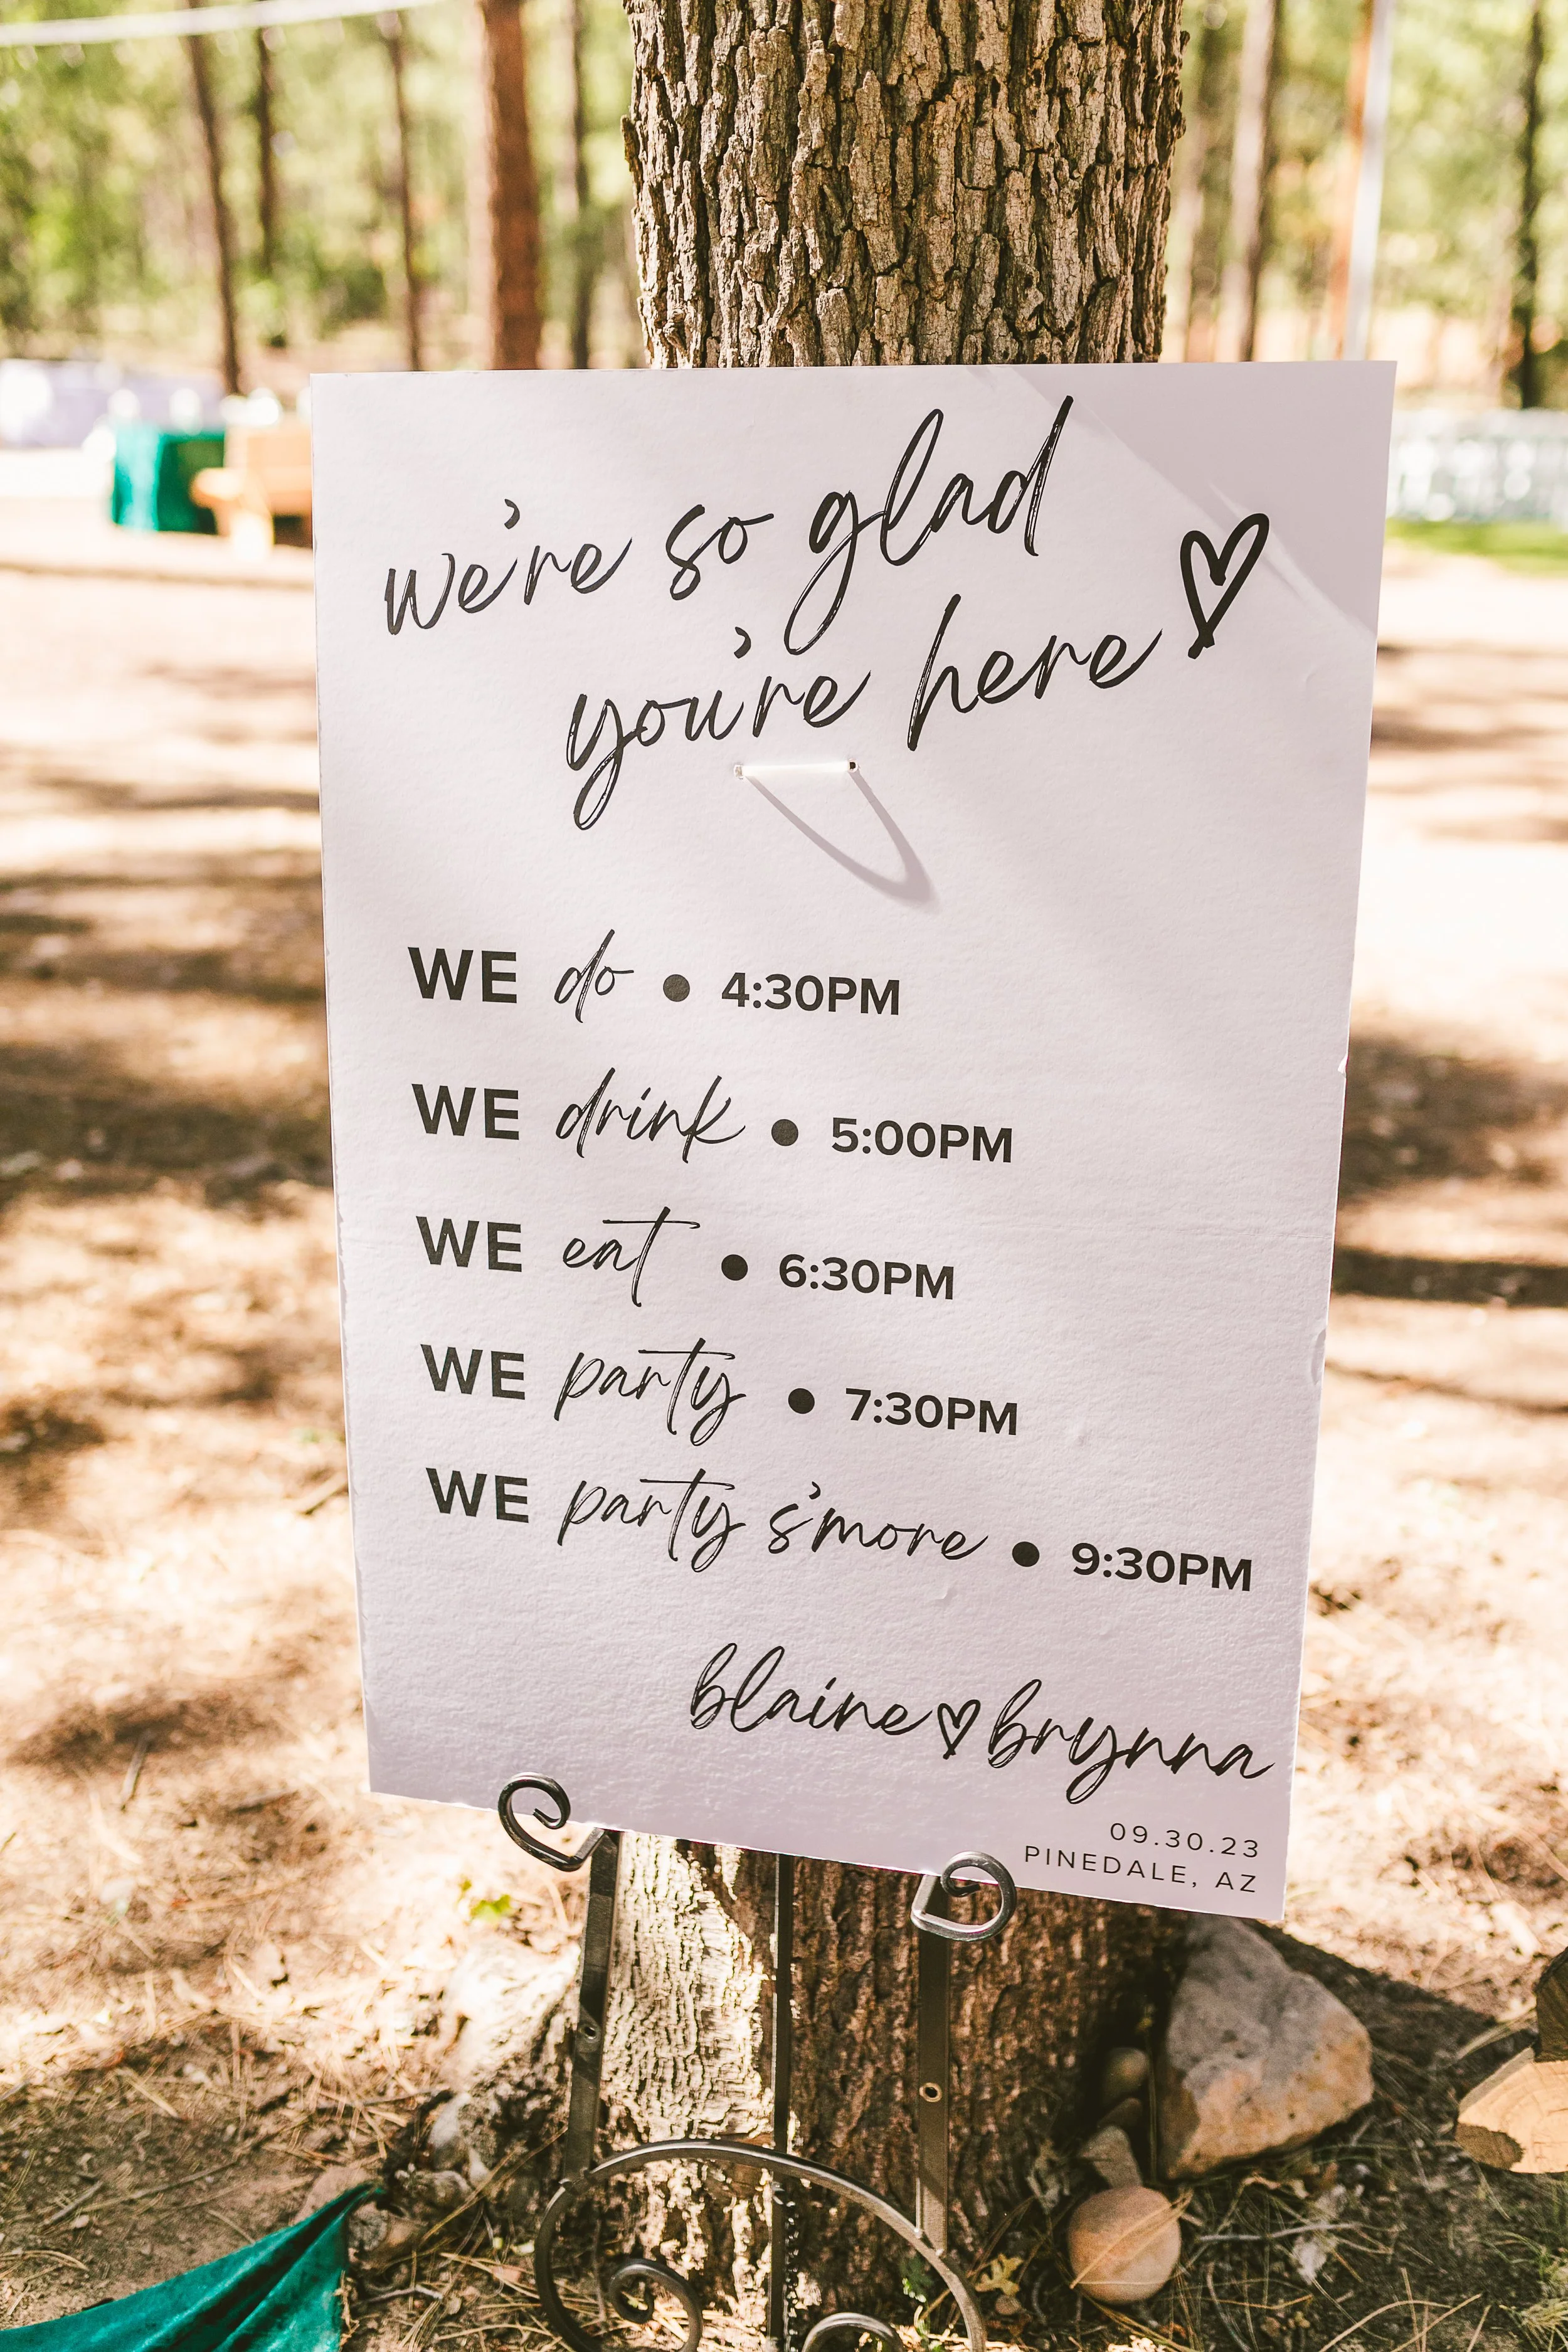 we're so glad
you're here ♡
WE do • 4:30PM
WE drink • 5:00PM
WE eat • 6:30PM
WE party • 7:30PM
WE party s'more • 9:30PM
blaine♡brynna
09.30.23
PINEDALE, AZ